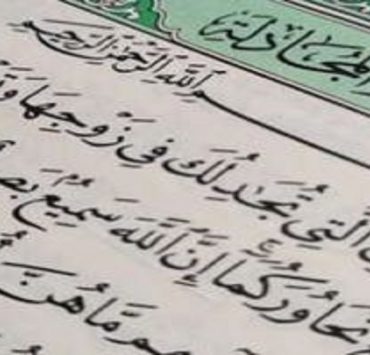 المجَادلَة
بِسْمِ ٱللَّهِ ٱلرَّحْمَٰنِ ٱلرَّحِيمِ
ٱلَّتِي تُجَٰدِلُكَ فِي زَوْجِهَا
تَحَاوُرَكُمَآ إِنَّ ٱللَّهَ سَمِيعُۢ
مَّا هُنَّ